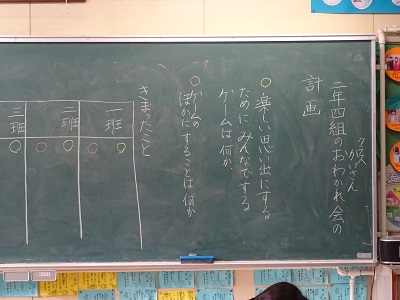 二年四組のおわかれ会の
計画
楽しい思い出にする
ためにみんなでする
ゲームは何か。
ゲームの
ほかにすることは何か
きまったこと
一班
二班
三班